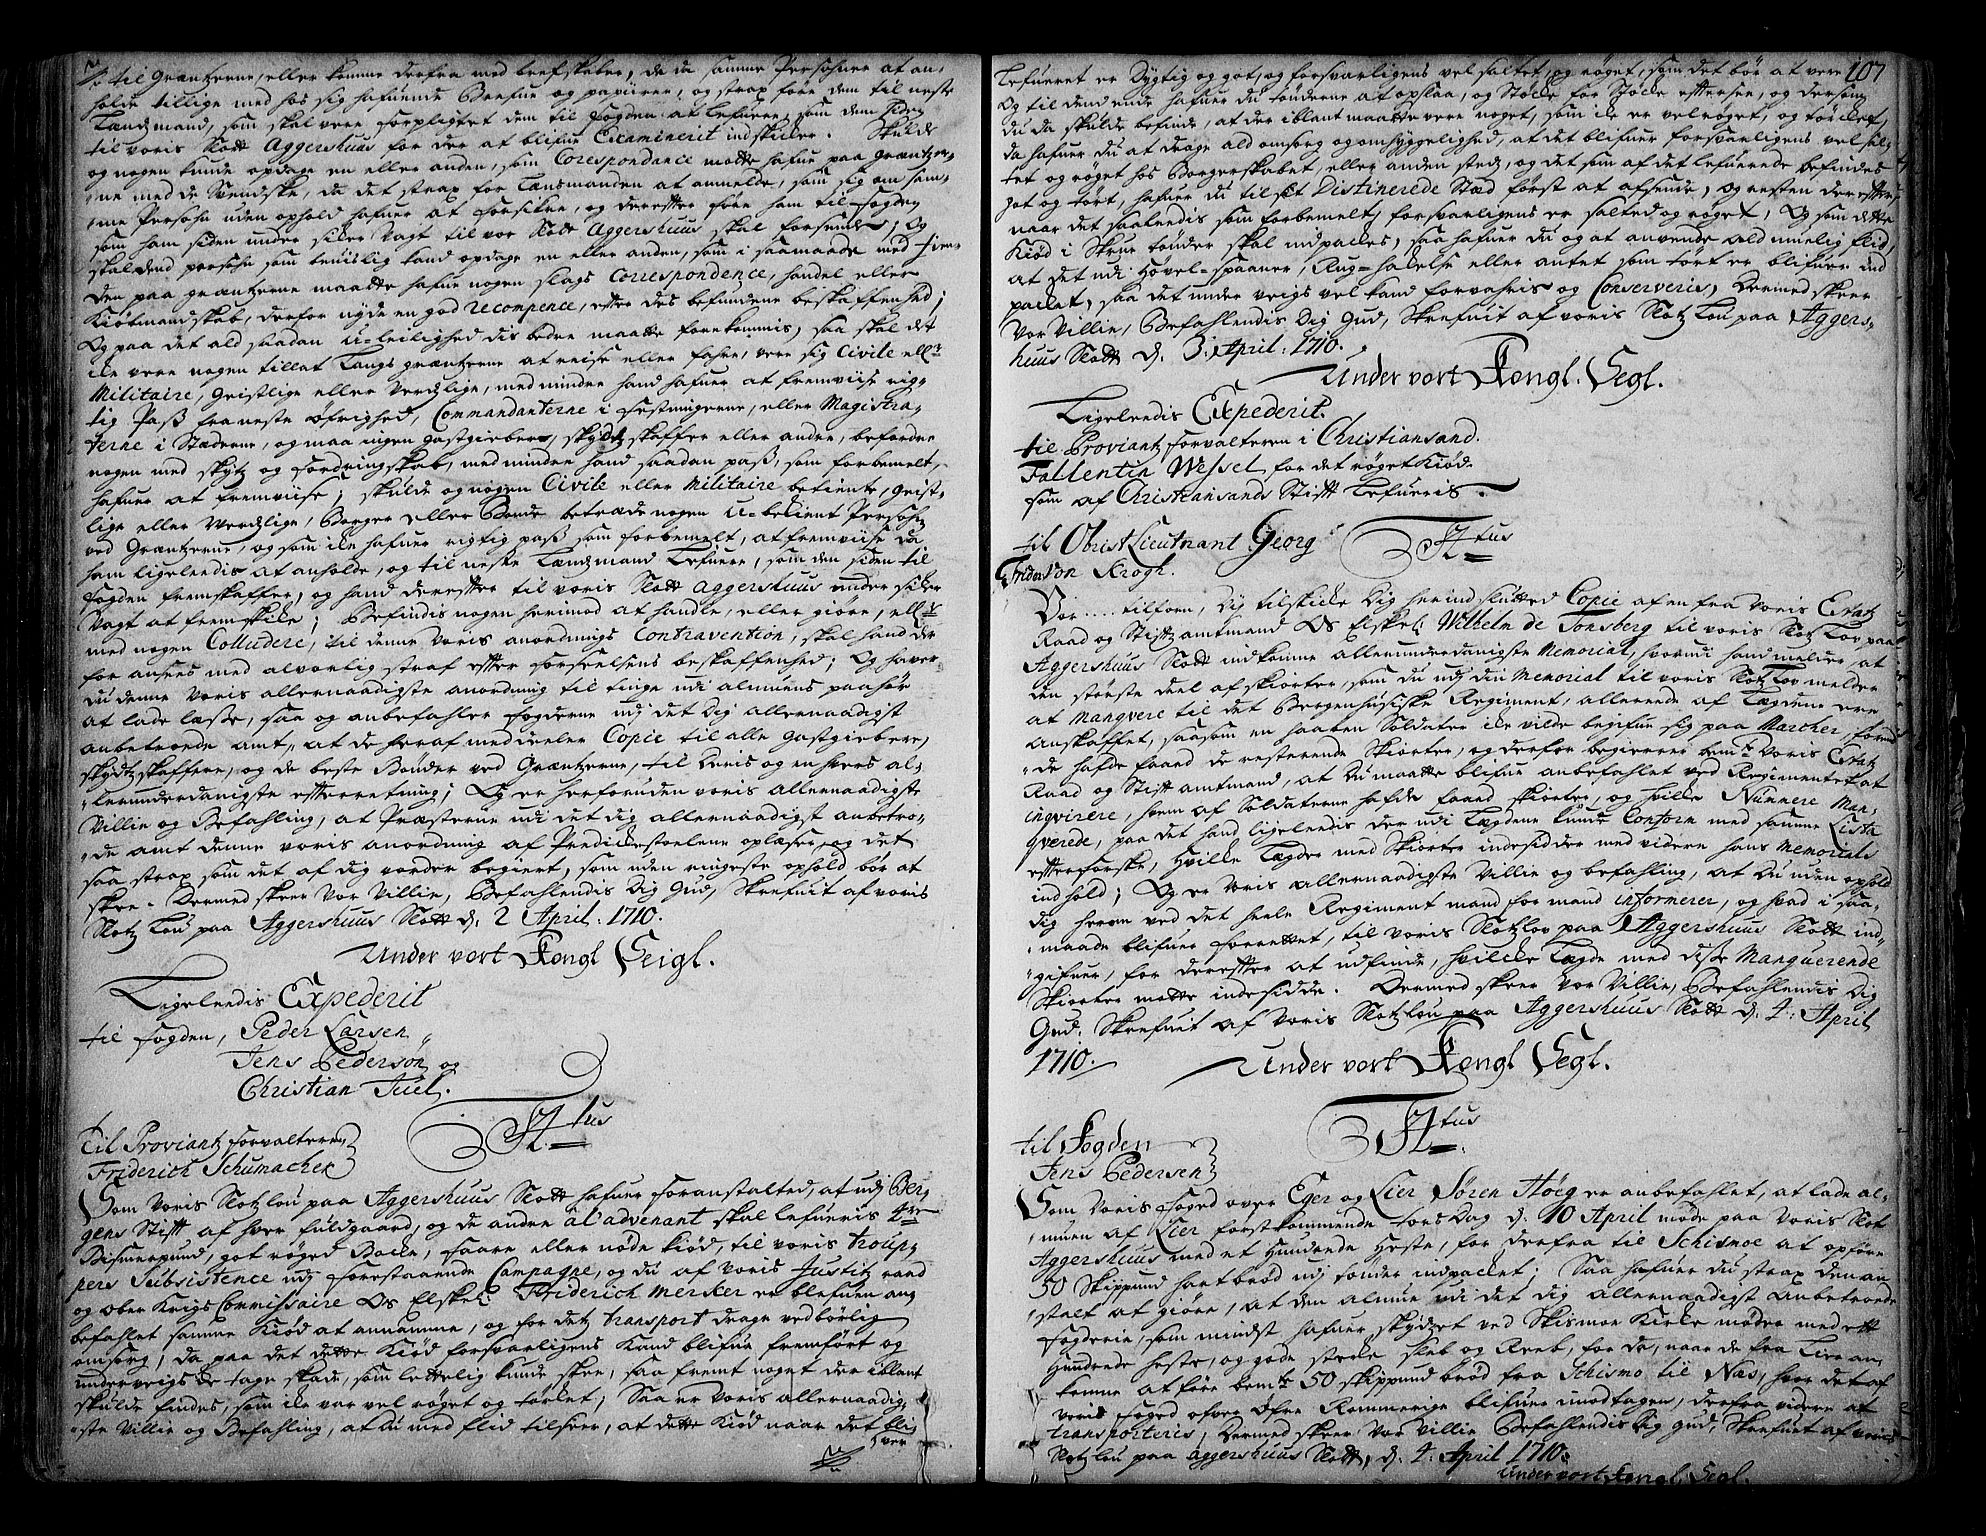 til Græntzerne, eller komme derfra med brefskaber, da da samme Persohner at an-
holde tillige med hos sig hafuende Brefue og papirer, og strax føre dem til neste
Lændzmand, som skal vere forpligtet dem til fogden at lefuere, som dem siden
til voris Slott Aggershuus for der at blifue Examinerit indskicker. Skulde
og nogen kunde opdage en eller anden, som Corespondance motte hafue paa Græntzer-
ne med de Svendske, da det strax for Lænsmanden at anmelde, som sig om sam-
me Persohn uden ophold hafuer at forsikre, og derefter føre ham til fogden
som ham siden under sicker Vagt til vor Slott Aggershuus skal forsende; Og
skal dend persohn som beviislig kand opdage en eller anden, som i saamaade med fien-
den paa græntzerne maatte hafue nogen slags Correspondence, handel eller
Kiøbmandskab, derfor nyde en god recompence, efter des befundene beskaffenhed;
Og paa det ald saadan U-leilighed dis bedre maatte forekommis, saa skal det
icke vere nogen tillat Langs græntzerne at reise eller fahre, vere sig Civile ell:
Militaire, Geistlige eller Verdslige, med mindre hand hafuer at fremviise rig-
tig Pass fra neste øfrighed, Commandanterne i festningerne, eller Magistra-
terne i Stæderne, og maa ingen gastgiebere, skydtzskaffer eller andre, befordre
nogen med skytz og fordringskab, med mindre hand saadan pass, som forbemelt,
hafuer at fremviise; skulde og nogen Civile eller Militaire betiente, Geist-
lige eller Verdslige, Borger eller Bonde betræde nogen U-bekient Persohn
ved Græntzerne, og som icke hafuer rigtig pass som forbemelt, at fremviise da
ham ligeleedis at anholde, og til neste Lændzmand lefuere, som den siden til
fogden fremskaffer, og hand derefter til voris Slott Aggershuus under sicker
Vagt at fremskicke; Befindis nogen herimod at handle, eller giøre, ell:r
med nogen Colludere, til denne Voris anordnings Contravention, skal hand der
for ansees med alvorlig straf efter forseelsens beskaffenhed; Og haver
du denne Voris allernaadigste anordning til tinge udi almuens paahør
at lade læsse, saa og anbefahler fogderne udj det Dig allernaadigst
anbetroede amt, at de heraf meddeeler Copie til alle Gastgiebere,
skydtzskaffere, og de beste Bønder ved Græntzerne, til Deris og en hvers al-
lerunderdanigste efterretning; Og er herforuden voris allernaadigste
Villie og Befahling, at Præsterne udi det dig allernaadigst anbetro-
de amt denne voris anordning af Predickestoelene oplæser, og det
saa strax som det af dig vorder begiert, som uden ringeste ophold bør at
skee. Dermed skeer Vor Villie, Befahlendis Dig Gud, Skrefuit af voris
Slotz Lou paa Aggershuus Slott d. 2 April. 1710.
Under vort Kongl Seigl.
Ligeleedis Expederit
til fogden, Peder Larsen
Jens Pederson og
Christian Juel.
Til Proviantz forvalteren
Friderich Schumacher
F4tus
Som Voris Slotz lou paa Aggershuus Slott hafuer foranstalted, at udj Ber-
gens Stift af hver fuldgaard, og de andre al advenant skal lefueris 4re
Bismerpund, got røged Bocke, faare eller nøde kiød, til voris troup-
pers Subsistence udj forestaaende Campagne, og du af voris Justitz raad
og ober Krigs Commissaire Os Elskel: Friderich Merker er blefuen an-
befahlet samme Kiød at annamme, og for det transport drage vedbørlig
omsorg, da paa det dette Kiød forsvarligens kand blifue fremført og
underveigs ey tage skade, som lettelig kunde skee, saa fremt noget der iblant
skulde findes, som icke var vel røget og tørket; Saa er Voris allernaadig-
ste Villie og Befahling, at Du med flid tilseer, at dette Kiød naar det bli-
ver
107
Lefueret er Dygtig og got, og forsvarligens vel saltet, og røget, som det bør at vere
Og til dend ende hafuer du tønderne at opslaa, og Støcke for Støcke eftersee, og dersom
du da skulde befinde, at der iblant maatte vere noget, som icke er vel røget, og tørcket,
da hafuer du at drage ald omsorg og omhyggelighed, at det blifuer forsvarligens vel sal-
tet og røget hos Borgerskabet, eller anden sted, og det som af det lefuerede befindes
got og tørt, hafuer du til et Distinerede Stæd først at afsende, og resten derefter,
naar det saaleedis som forbemelt, forsvarligens er salted og røget, Og som dette
Kiød i Skrue tønder skal indpackes, saa hafuer du og at anvende ald muelig flid,
at det udi Høvel-spaaner, Rug-hackelse eller antet som tørt er blifuer ind
packet, saa det under veigs vel kand forvahris og Conserveris, Dermed skeer
Vor Villie, Befahlendis Dig Gud, Skrefuit af voris Slotz Lou paa Aggers-
huus Slott d. 3. April. 1710.
Under vort Kongl. Segl.
Ligeleedis Expederit.
til Proviantz forvalteren i Christiansand.
Fallentin Wessel for det røget Kiød
som af Christiansands Stift lefueris.
til Obrist Lieutnant Georg
Frider: Von Krogh.
F4tus
Vor .... tilforn, Vi tilskicke Dig herind slutted Copie af en fra Voris Etatz
Raad og Stiftzamtmand Os Elskel: Wilhelm de Tonsberg til voris Slotz Lov paa
Aggershuus Slott indkomne allerunderdanigste Memorial, hvorudi hand melder, at
den største deel af skiorter, som du udj din Memorial til voris Slotz Lov melder
at Mangvere til det Bergenhusiske Regiment, allerede af Lægdene ere
anskaffet, saasom en haaben Soldater icke vilde begifue sig paa Marcher, førend
de hafde faaed de resterende Skiorter, og derfor begierer bem:te Voris Etatz
Raad og Stiftamtmand, at Du maatte blifue anbefahlet ved Regimentet at
ingvirere, hvem af Soldaterne hafde faaed skiorter, og hvilke Nummere Man-
gverede, paa det hand ligeleedis der udi Lægdene kunde Conform med samme Lista
efterforske, hvilke Lægder med Skiorter indesidder med videre hans Memorials
indhold; Og er Voris allernaadigste Villie og befahling, at Du uden ophold
dig herom ved det heele Regiment mand for mand informerer, og hvad i saa-
maade blifuer forrettet, til voris Slotz lov paa Aggershuus Slott ind-
gifuer, for derefter at udfinde, hvilcke Lægde med disse Manguerende
Skiorter motte indesidde. Dermed skeer Vor Villie, Befahlendis Dig
Gud. Skrefuit af Voris Slotz Lou paa Aggershuus Slott d. 4. April
1710.
Under vort Kongl Segl.
F4tus.
til Fogden
Jens Pedersen
Som Voris foged over Eger og Lier Søren Høeg er anbefahlet, at lade al-
muen af Lier førstkommende torsdag d. 10 April møde paa Voris Slot
Aggershuus med et Hundrede Heste, for derfra til Schismoe at opføre
50 Skippund hart brød udj tønder indpacket; Saa hafuer du strax den an-
stalt at giøre, at den almue udi det dig allernaadigst Anbetroede
fogderie, som mindst hafuer skydset ved Skismoe Kirke møder med ett
Hundrede heste, og gode sterke sleb og Reeb, for da, naar de fra Lier an-
komme at føre bem:te 50 skippund brød fra Schismo til Næs, hvor det af
voris foged ofver Øfre Rommerige blifuer imodtagen, derfra videre at
transporteris, Dermed skeer Vor Villie Befahlendis Dig Gud, Skrefuit af voris
Slotz Lou paa Aggershuus Slott, d. 4. April 1710.
Under vort Kongl. Segl.